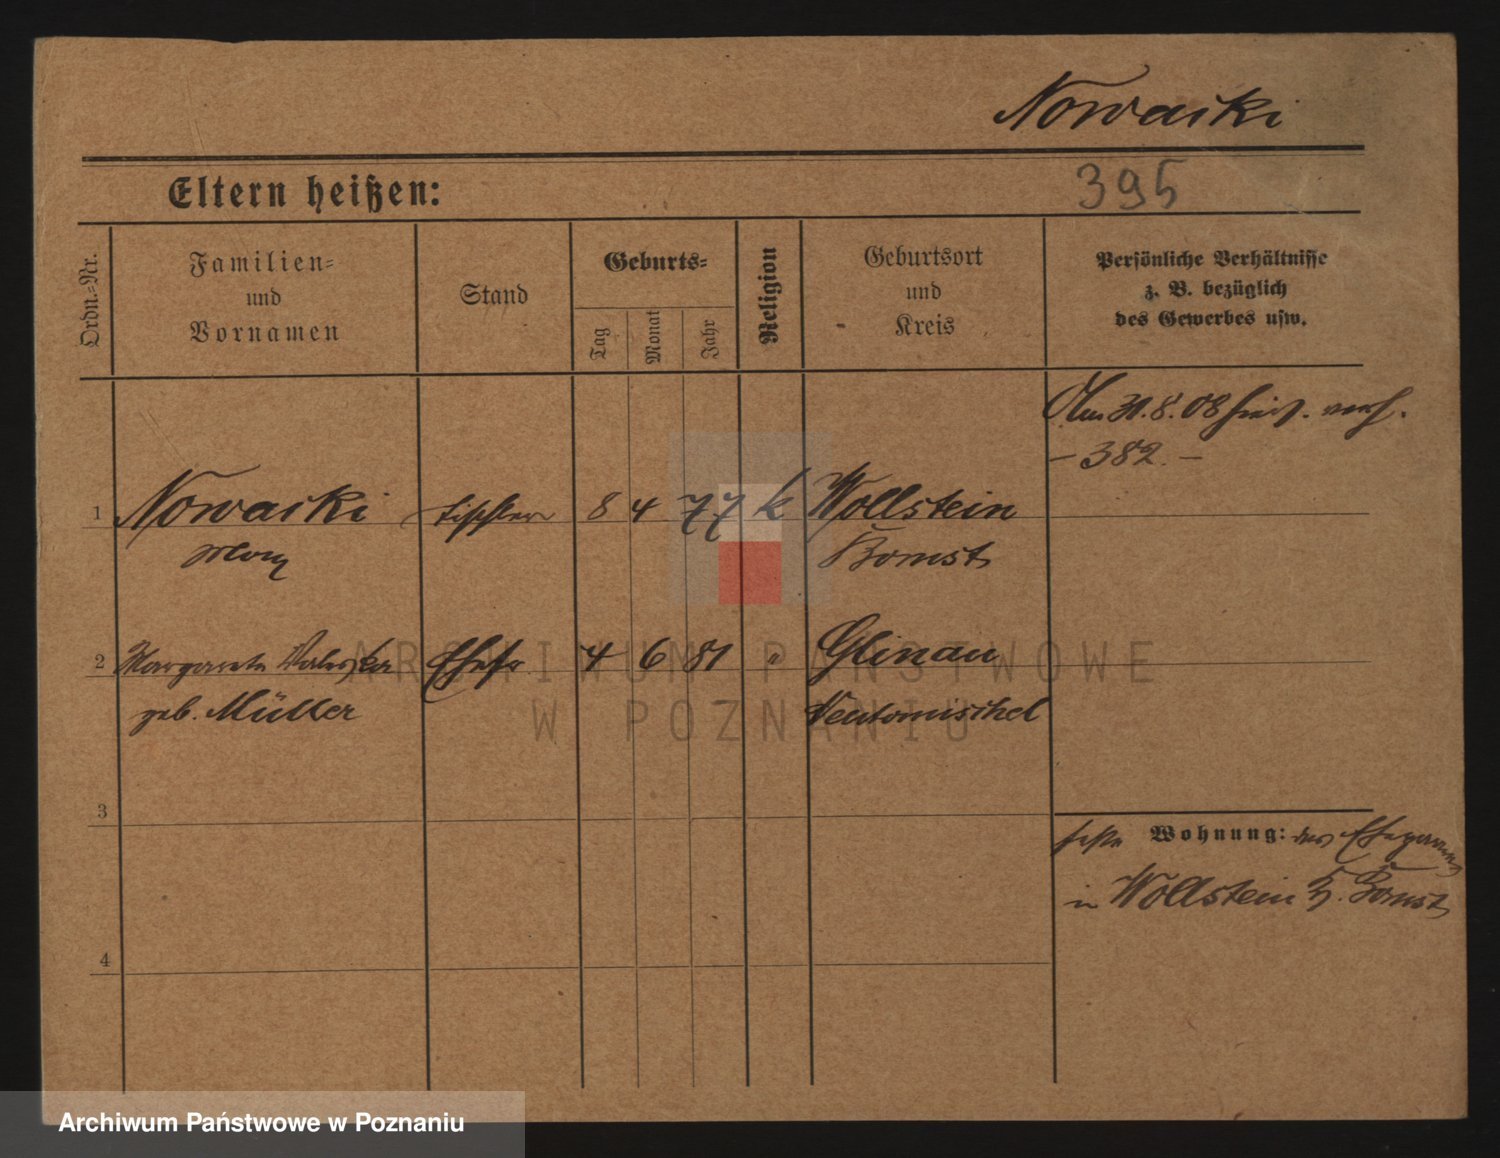 Nowacki
Eltern heißen:
395
Ordn.-Nr.
Familien-
und
Vornamen
Stand
Geburts-
Tag
Monat
Jahr
Religion
Geburtsort
und
Kreis
Persönliche Verhältnisse
z. B. bezüglich
des Gewerbes usw.
Am 31.8.08
- 382. -
1 Nowacki Tischler 8 4 77 k Wollstein
Bomst
2 Margarete Valeska Ehefr 4 6 81 " Glinau
geb. Müller Neutomischel
3
Wohnung: des
in Wollstein K. Bomst
4
ARCHIWUM PAŃSTWOWE
W POZNANIU
Archiwum Państwowe w Poznaniu